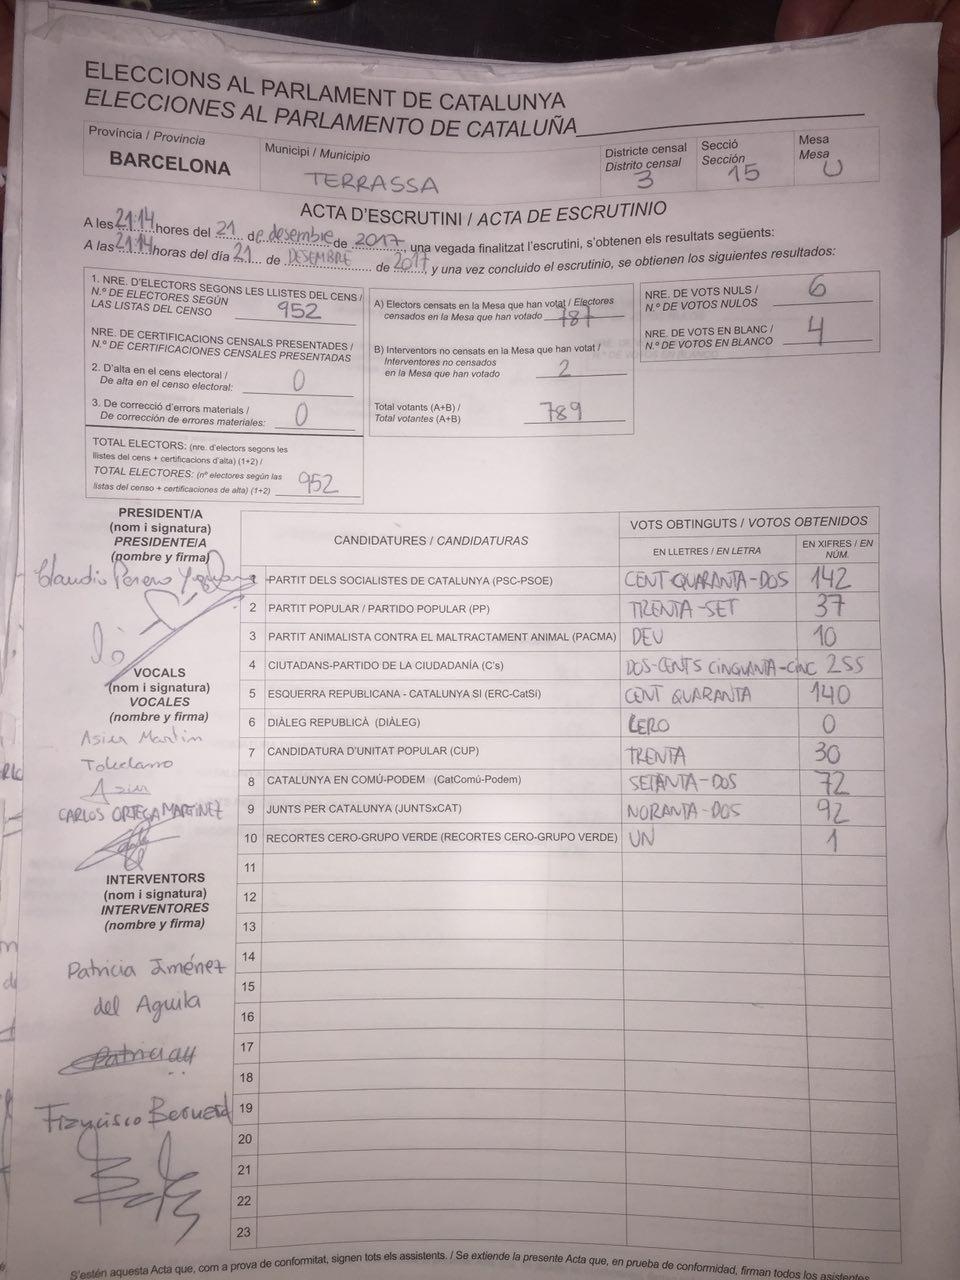 ELECCIONS AL PARLAMENT DE CATALUNYA
ELECCIONES AL PARLAMENTO DE CATALUÑA
Província / Provincia
BARCELONA
Municipi / Municipio
TERRASSA
Districte censal
Distrito censal
3
Secció
Sección
15
Mesa
Mesa
U
ACTA D'ESCRUTINI / ACTA DE ESCRUTINIO
A les 21:14 hores del 21 de desembre de 2017, una vegada finalitzat l'escrutini, s'obtenen els resultats següents:
A las 21:14 horas del día 21 de DESEMBRE de 2017 y una vez concluido el escrutinio, se obtienen los siguientes resultados:
1. NRE. D'ELECTORS SEGONS LES LLISTES DEL CENS /
N.º DE ELECTORES SEGÚN
LAS LISTAS DEL CENSO 952
NRE. DE CERTIFICACIONS CENSALS PRESENTADES /
N.º DE CERTIFICACIONES CENSALES PRESENTADAS
2. D'alta en el cens electoral /
De alta en el censo electoral: 0
3. De correcció d'errors materials /
De corrección de errores materiales: 0
TOTAL ELECTORS: (nre. d'electors segons les
llistes del cens + certificacions d'alta) (1+2) /
TOTAL ELECTORES: (nº electores según las
listas del censo + certificaciones de alta) (1+2) 952
A) Electors censats en la Mesa que han votat / Electores
censados en la Mesa que han votado 787
B) Interventors no censats en la Mesa que han votat /
Interventores no censados
en la Mesa que han votado 2
Total votants (A+B) /
Total votantes (A+B) 789
NRE. DE VOTS NULS /
N.º DE VOTOS NULOS 6
NRE. DE VOTS EN BLANC /
N.º DE VOTOS EN BLANCO 4
PRESIDENT/A
(nom i signatura)
PRESIDENTE/A
(nombre y firma)
Claudio
VOCALS
(nom i signatura)
VOCALES
(nombre y firma)
Asier Martin
Toledano
Asier
CARLOS ORTEGA MARTINEZ
INTERVENTORS
(nom i signatura)
INTERVENTORES
(nombre y firma)
Patricia Jiménez
del Aguila
Francisco
CANDIDATURES / CANDIDATURAS
VOTS OBTINGUTS / VOTOS OBTENIDOS
EN LLETRES / EN LETRA
EN XIFRES / EN NÚM.
1 PARTIT DELS SOCIALISTES DE CATALUNYA (PSC-PSOE) CENT QUARANTA-DOS 142
2 PARTIT POPULAR / PARTIDO POPULAR (PP) TRENTA-SET 37
3 PARTIT ANIMALISTA CONTRA EL MALTRACTAMENT ANIMAL (PACMA) DEU 10
4 CIUTADANS-PARTIDO DE LA CIUDADANÍA (C's) DOS-CENTS CINQUANTA-CINC 255
5 ESQUERRA REPUBLICANA - CATALUNYA SI (ERC-CatSí) CENT QUARANTA 140
6 DIÀLEG REPUBLICÀ (DIÀLEG) CERO 0
7 CANDIDATURA D'UNITAT POPULAR (CUP) TRENTA 30
8 CATALUNYA EN COMÚ-PODEM (CatComú-Podem) SETANTA-DOS 72
9 JUNTS PER CATALUNYA (JUNTSxCAT) NORANTA-DOS 92
10 RECORTES CERO-GRUPO VERDE (RECORTES CERO-GRUPO VERDE) UN 1
11
12
13
14
15
16
17
18
19
20
21
22
23
S'estén aquesta Acta que, com a prova de conformitat, signen tots els assistents. / Se extiende la presente Acta que, en prueba de conformidad, firman todos los asistentes